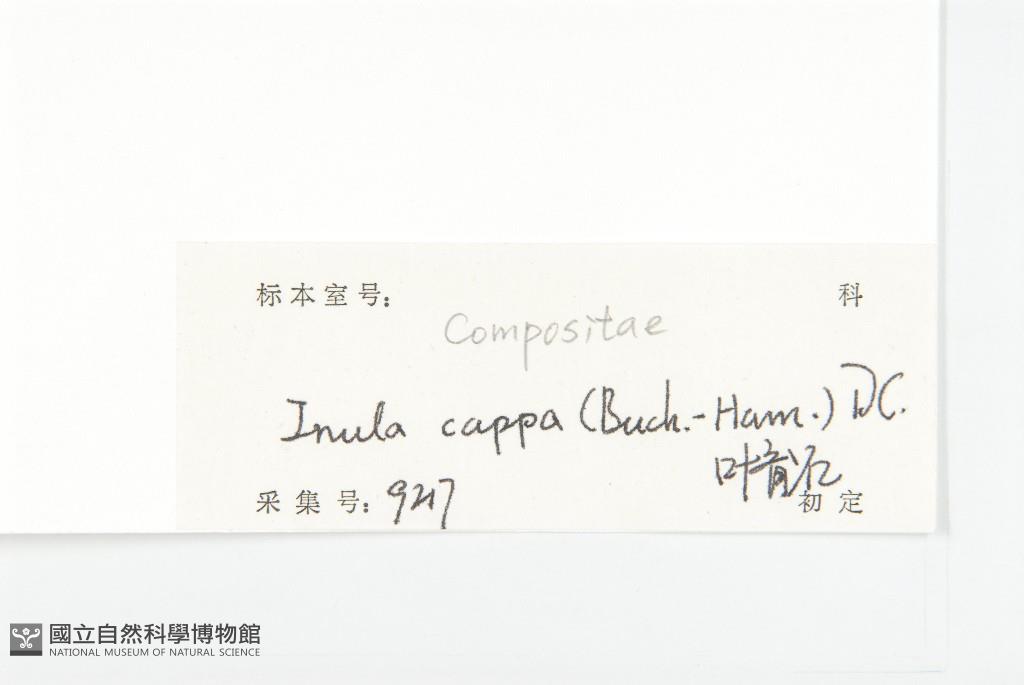 标本室号： 科
Compositae
Inula cappa (Buch.-Ham.) DC.
叶
采集号：927 初定
國立自然科學博物館
NATIONAL MUSEUM OF NATURAL SCIENCE